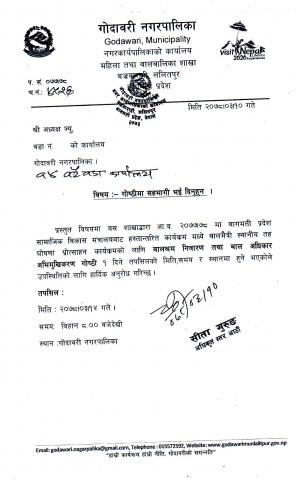 गोदावरी नगरपालिका
Godawari, Municipality
नगरकार्यपालिकाको कार्यालय
महिला तथा बालबालिका शाखा
ललितपुर
प्रदेश
visit Nepal
2020
प. सं. ०७७/७८
च.नं.:
मिति २०७८।०३।१० गते
श्री अध्यक्ष ज्यू,
वडा नं. को कार्यालय
गोदावरी नगरपालिका ।
१४ वटै वडा कार्यालय
विषय :- गोष्ठीमा सहभागी भई दिनुहुन ।
प्रस्तुत विषयमा यस शाखाद्वारा आ.व. २०७७/७८ मा बागमती प्रदेश
सामाजिक विकास मन्त्रालयबाट हस्तान्तरित कार्यक्रम मध्ये बालमैत्री स्थानीय तह
घोषणा प्रोत्साहन कार्यक्रमको लागि बालश्रम निवारण तथा बाल अधिकार
अभिमुखिकरण गोष्ठी १ दिने तपसिलको मिति,समय र स्थानमा हुने भएकोले
उपस्थितिको लागि हार्दिक अनुरोध गरिन्छ ।
तपसिल :
मिति : २०७८।०३।१४ गते ।
समय: बिहान ८.०० बजेदेखी
स्थान :गोदावरी नगरपालिका
०७८/०३/१०
सीता गुरुङ
अधिकृत स्तर आठौं
Email: godawari.nagarpalika@gmail.com, Telephone : 015572592, Website: www.godawarimunlalitpur.gov.np
"हाम्रो कार्यक्रम हाम्रो नीति, गोदावरीको सम्नति"